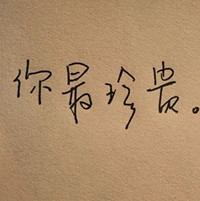 你最珍贵。